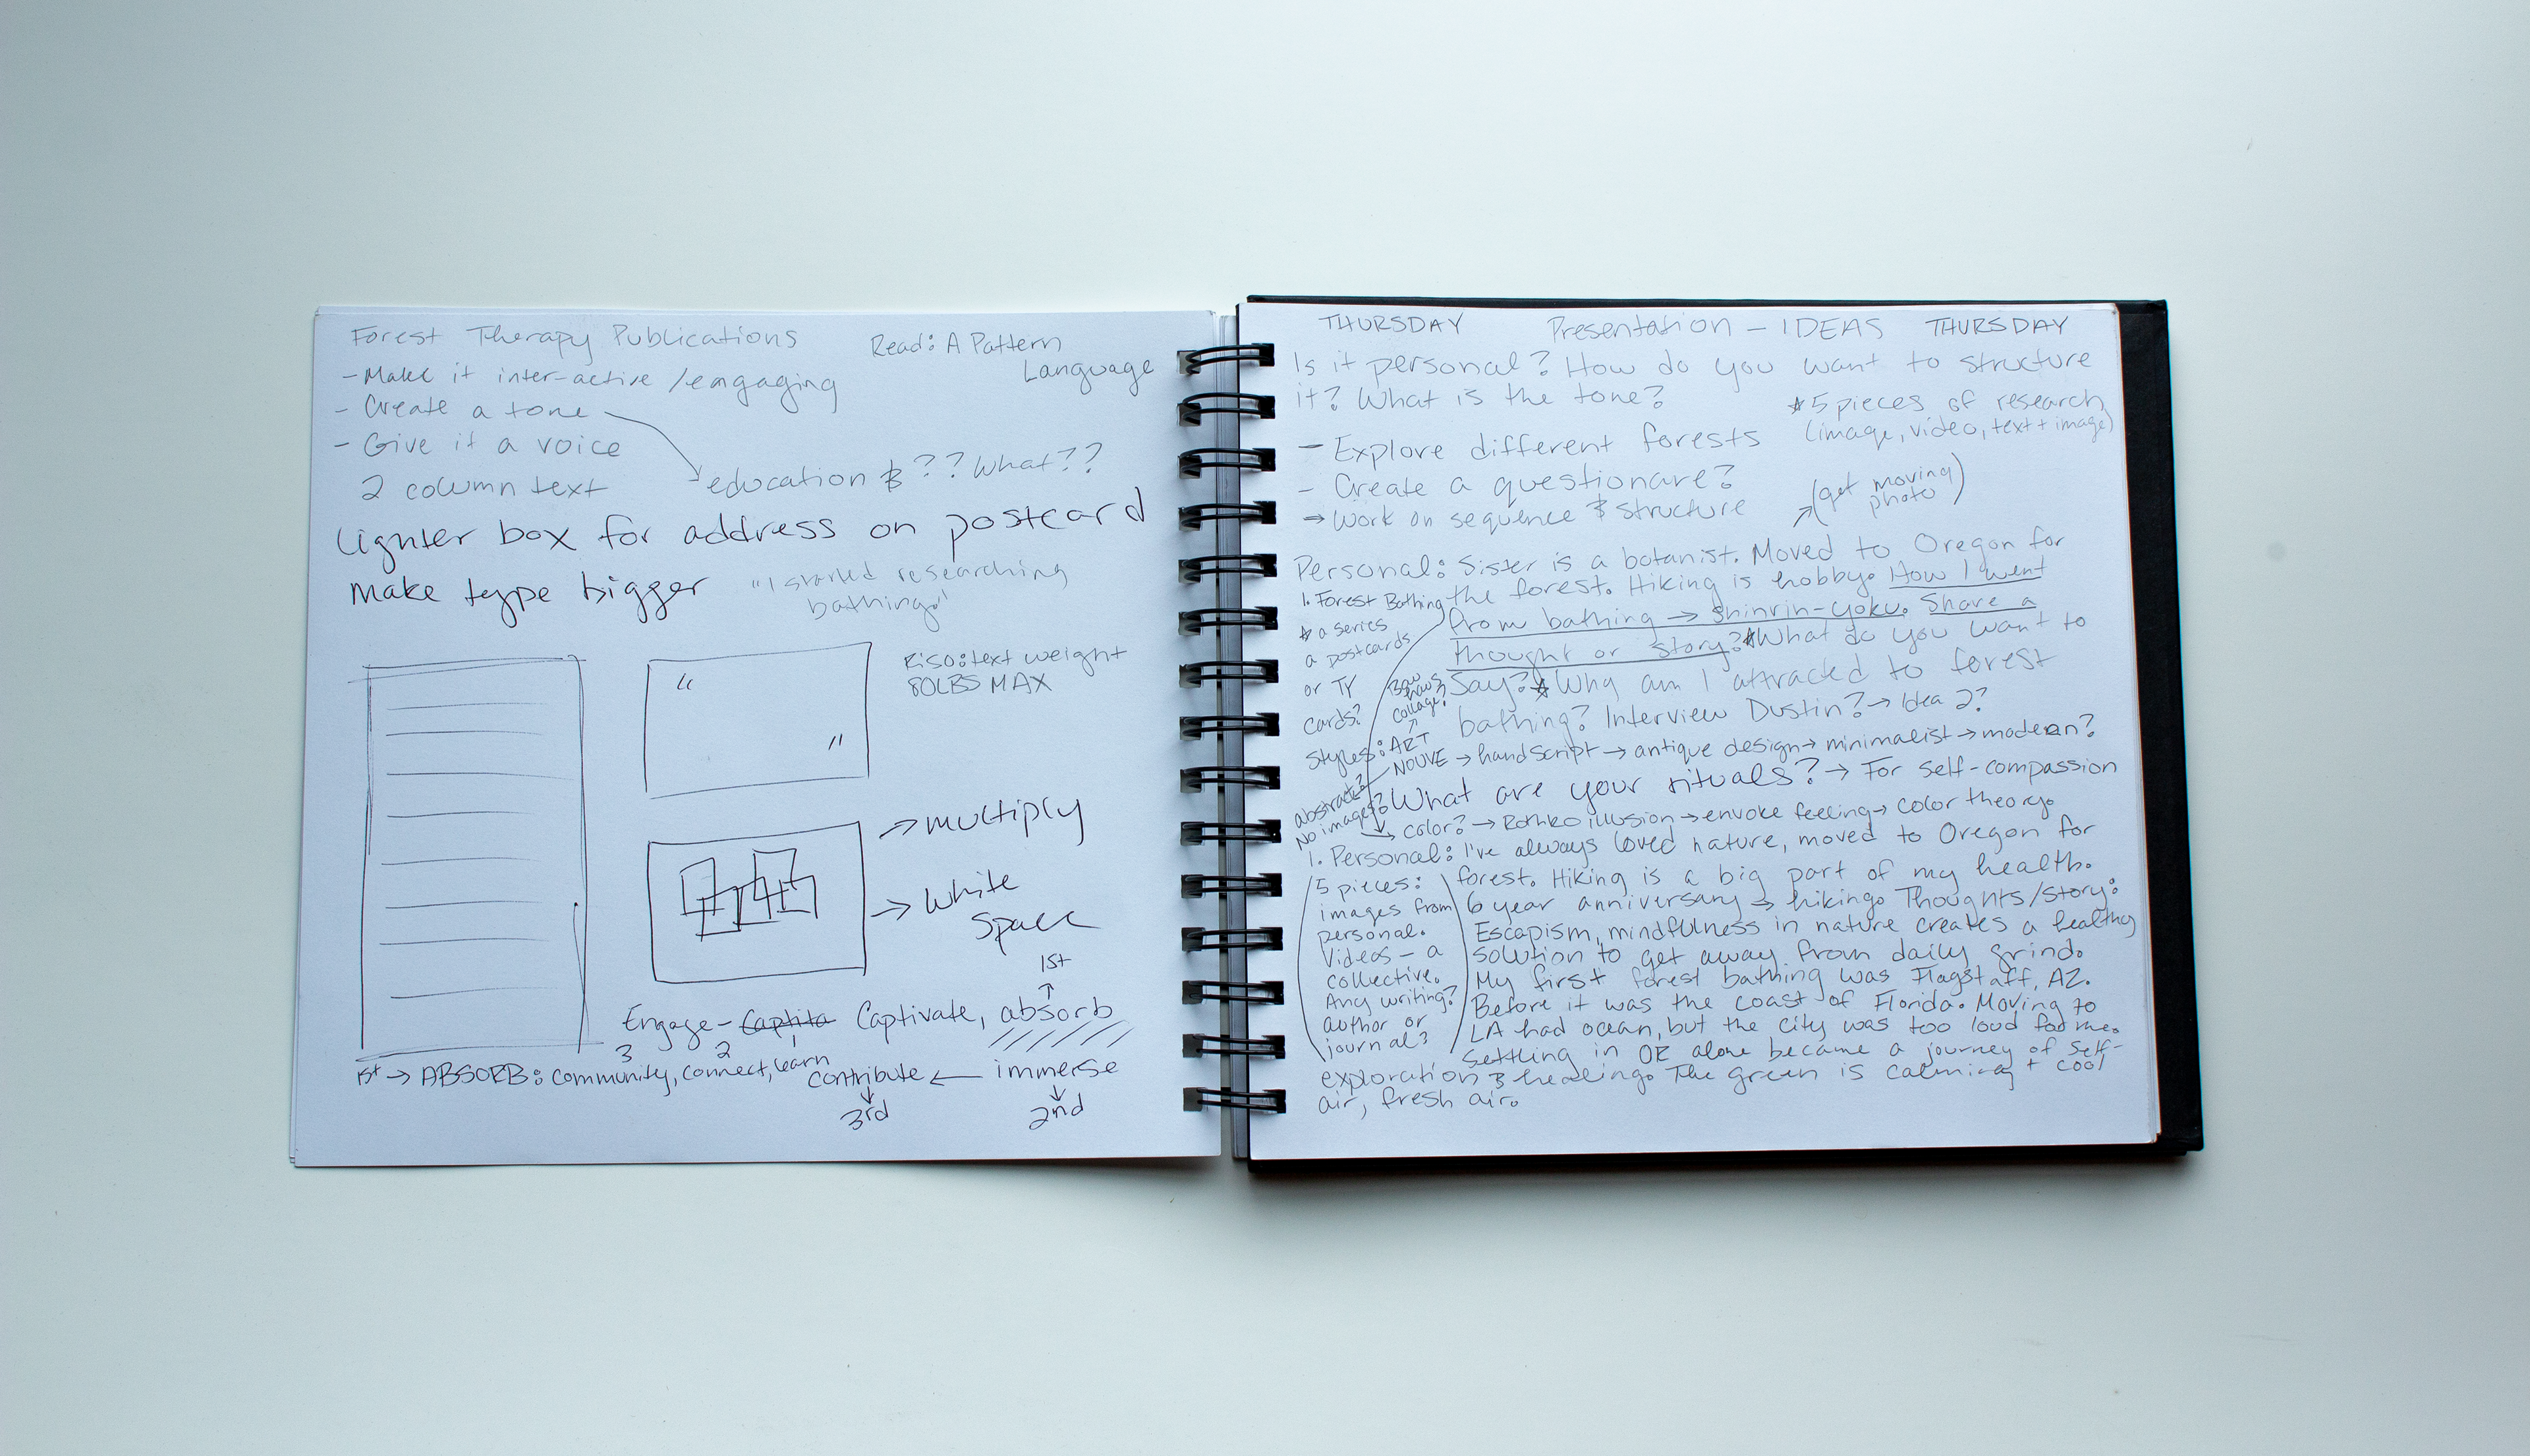 Forest Therapy Publications
Read: A Pattern
Language
- Make it inter-active /engaging
- Create a tone
- Give it a voice
education & ?? What??
2 column text
Lighter box for address on postcard
make type bigger
"I started researching
bathing."
Riso: text weight
80LBS MAX
"
"
→ multiply
→ White
Space
1st
Engage - Captita Captivate, absorb
3 2 1
1st → ABSORB: community, connect, learn
contribute ← immerse
3rd
2nd
THURSDAY Presentation - IDEAS THURSDAY
Is it personal? How do you want to structure
it? What is the tone?
* 5 pieces of research
(image, video, text + image)
- Explore different forests
- Create a questionare?
→ Work on sequence & structure
(get moving
photo)
Personal: Sister is a botanist. Moved to Oregon for
the forest. Hiking is hobby. How I went
from bathing → shinrin-yoku. Share a
thought or story? *What do you want to
say? * Why am I attracted to forest
bathing? Interview Dustin? → Idea 2?
1. Forest Bathing
* a series
a postcards
or TY
cards?
collage?
Styles: ART
NOUVE → handscript → antique design → minimalist → modern?
abstract?
No image?
What are your rituals? → For self-compassion
color? → Rothko illusion → envoke feeling → color theory.
1. Personal: I've always loved nature, moved to Oregon for
forest. Hiking is a big part of my health.
6 year anniversary → hiking. Thoughts/Story:
Escapism, mindfulness in nature creates a healthy
solution to get away from daily grind.
My first forest bathing was Flagstaff, AZ.
Before it was the coast of Florida. Moving to
LA had ocean, but the city was too loud for me.
Settling in OR alone became a journey of self-
exploration & healing. The green is calming + cool
air, fresh air.
5 pieces:
images from
personal.
Videos - a
collective.
Any writing?
author or
journal?